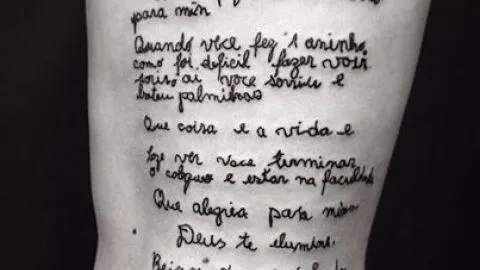 para min
Quando você fez 1 aninho
como foi dificil fazer você
você sorriu e
bateu palminhas
Que coisa e a vida e
foge ver voce terminar
o colegio e estar na faculdade
Que alegria para mim
Deus te elumine.